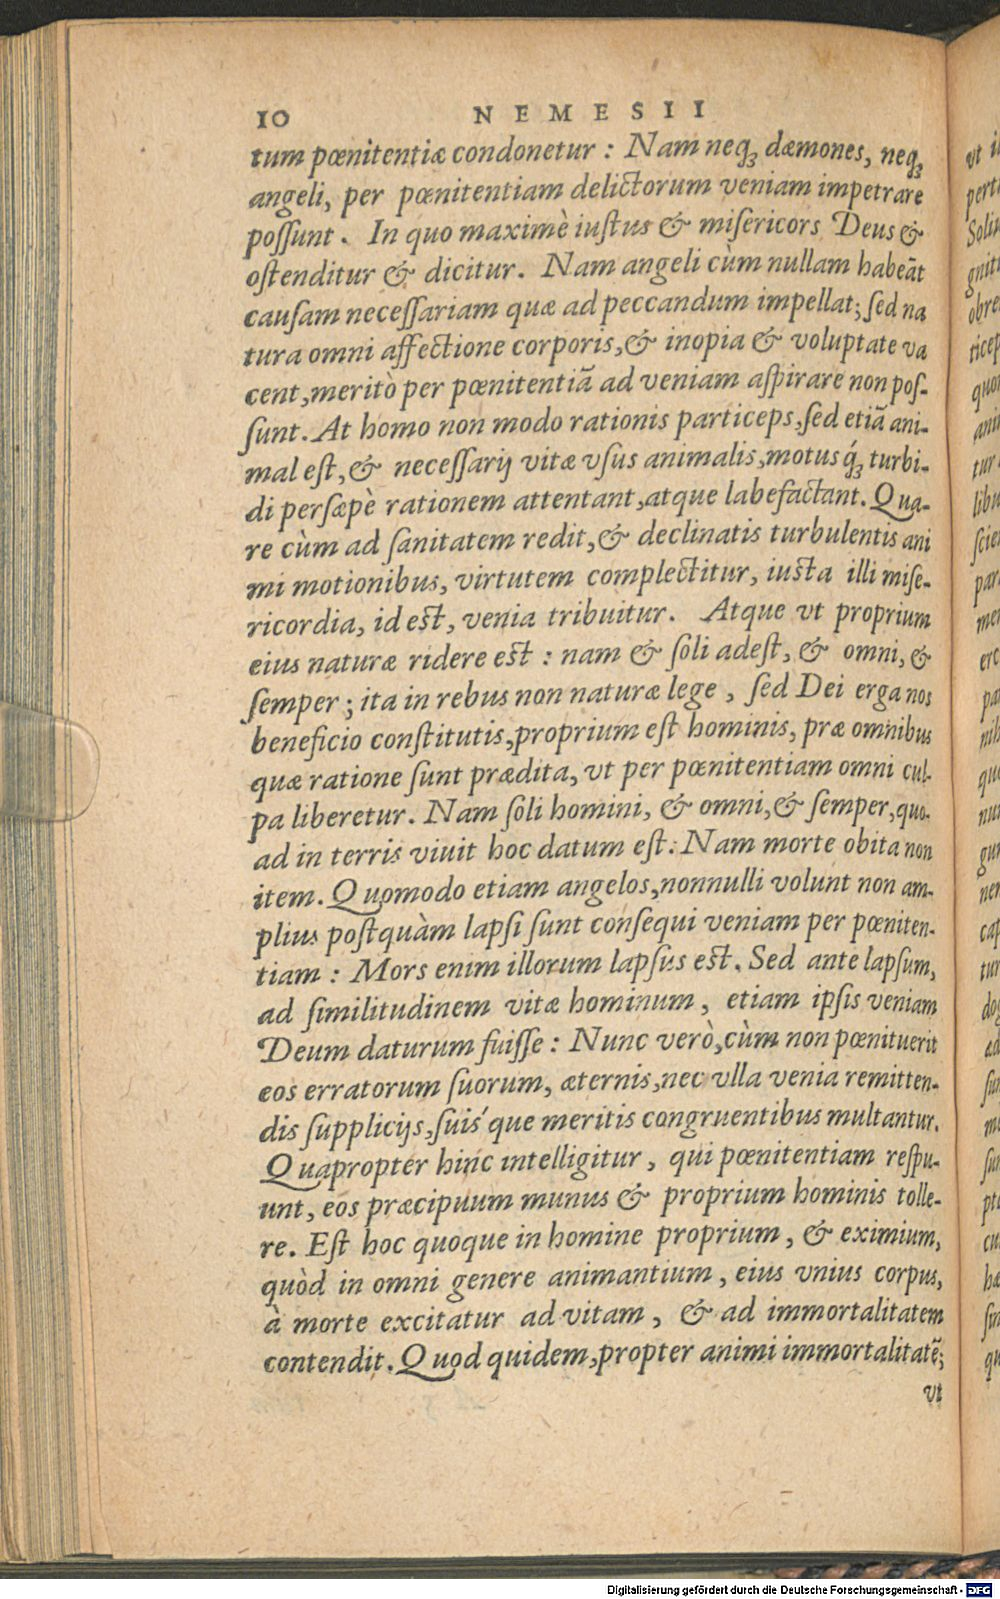 10 NEMESII
tum pœnitentiæ condonetur : Nam neqꝫ dæmones, neqꝫ
angeli, per pœnitentiam delictorum veniam impetrare
poſſunt. In quo maximè iuſtus & miſericors Deus &
oſtenditur & dicitur. Nam angeli cùm nullam habeāt
cauſam neceſſariam quæ ad peccandum impellat; ſed na
tura omni affectione corporis,& inopia & voluptate va
cent,meritò per pœnitentiā ad veniam aſpirare non poſ-
ſunt. At homo non modo rationis particeps,ſed etiā ani-
mal eſt,& neceſſarij vitæ vſus animalis,motus q́ꝫ turbi-
di perſæpè rationem attentant,atque labefactant. Qua-
re cùm ad ſanitatem redit,& declinatis turbulentis ani
mi motionibus, virtutem complectitur, iuſta illi miſe-
ricordia, id eſt, venia tribuitur. Atque vt proprium
eius naturæ ridere eſt : nam & ſoli adeſt, & omni, &
ſemper; ita in rebus non naturæ lege, ſed Dei erga nos
beneficio conſtitutis,proprium eſt hominis, præ omnibus
quæ ratione ſunt prædita, vt per pœnitentiam omni cul-
pa liberetur. Nam ſoli homini, & omni,& ſemper,quo-
ad in terris viuit hoc datum eſt: Nam morte obita non
item. Quomodo etiam angelos,nonnulli volunt non am-
plius poſtquàm lapſi ſunt conſequi veniam per pœniten-
tiam : Mors enim illorum lapſus eſt. Sed ante lapſum,
ad ſimilitudinem vitæ hominum, etiam ipſis veniam
Deum daturum fuiſſe : Nunc verò,cùm non pœnituerit
eos erratorum ſuorum, æternis,nec vlla venia remitten-
dis ſupplicijs,ſuis´que meritis congruentibus multantur.
Quapropter hinc intelligitur, qui pœnitentiam reſpu-
unt, eos præcipuum munus & proprium hominis tolle-
re. Eſt hoc quoque in homine proprium, & eximium,
quòd in omni genere animantium, eius vnius corpus,
à morte excitatur ad vitam, & ad immortalitatem
contendit. Quod quidem,propter animi immortalitatē;
vt
Digitalisierung gefördert durch die Deutsche Forschungsgemeinschaft - DFG